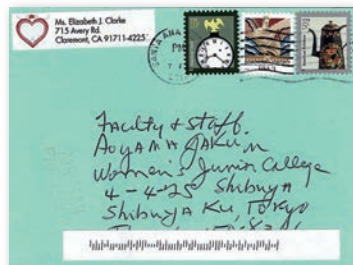 Ms. Elizabeth J. Clarke
715 Avery Rd.
Claremont, CA 91711-4225
SANTA ANA
PM
Faculty & Staff.
AOYAMA GAKUIN
Women's Junior College
4-4-25 Shibuya
Shibuya Ku, Tokyo